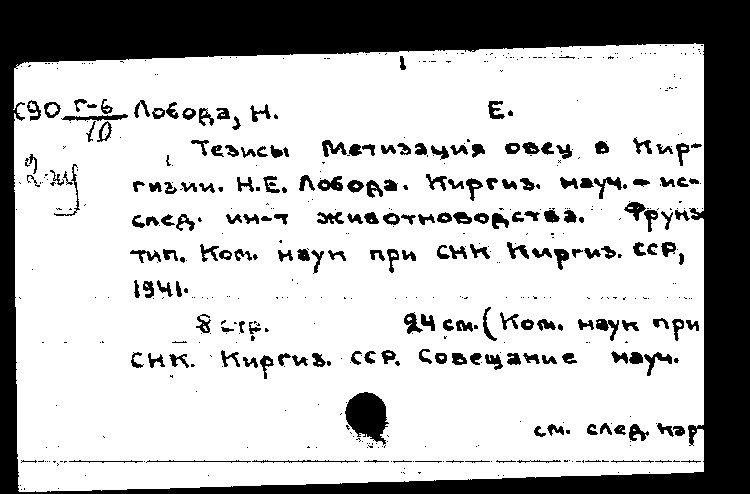 С90 г-6/10 Лобода, Н. Е.
Тезисы Метизация овец в Кир-
гизии. Н.Е. Лобода. Киргиз. науч.-ис-
след. ин-т животноводства. Фрунз
тип. Ком. наук при СНК Киргиз. ССР,
1941.
8 стр. 24 см. (Ком. наук при
СНК. Киргиз. ССР. Совещание науч.
см. след. кар